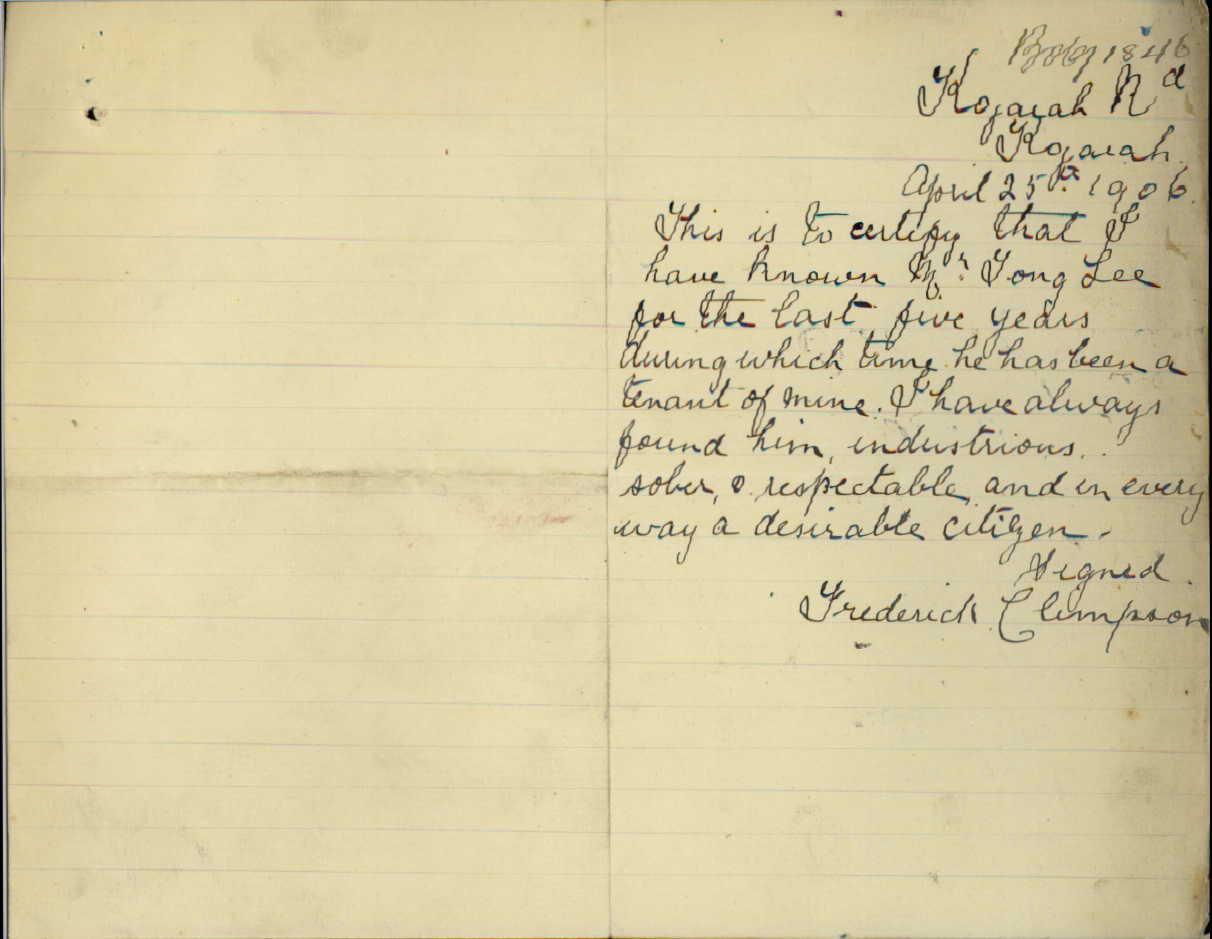 Kogarah Rd
Kogarah.
April 25th. 1906.
This is to certify that I
have known Mr. Tong Lee
for the last five years
during which time he has been a
tenant of mine. I have always
found him, industrious.
sober, & respectable, and in every
way a desirable citizen.
Signed.
Frederick Climpson